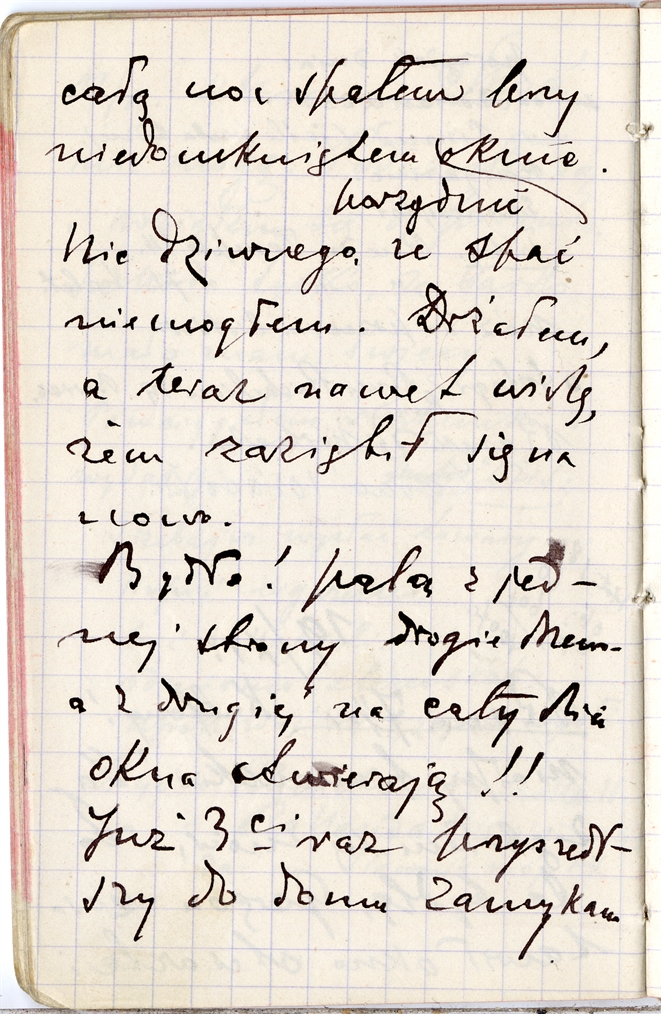 całą noc spałem przy
niedomkniętem oknie.
porządnie
Nic dziwnego, że spać
niemogłem. Drżałem,
a teraz nawet widzę,
żem zaziębił się na
nowo.
Bydło! palą z jed-
nej strony drogie drzewo
a z drugiej na cały dzień
okna otwierają!!
Już 3ci raz przyszedł-
szy do domu zamykam